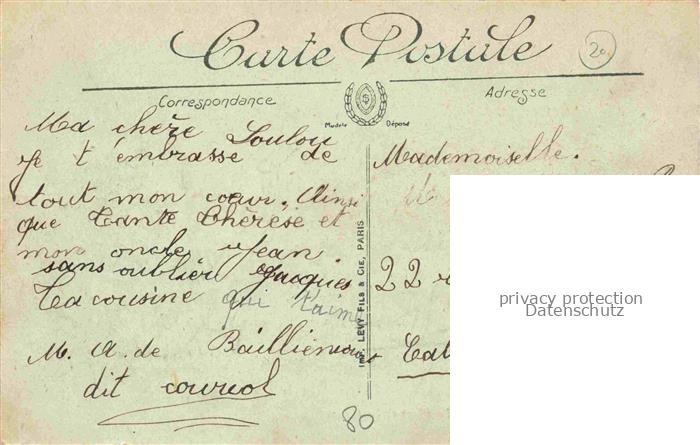 Carte Postale
20
Correspondance
Adresse
Modèle Déposé
Ma chère Loulou
Je t'embrasse de
tout mon coeur. Ainsi
que Tante Thérèse et
mon oncle Jean
sans oublier Jacques
Ta cousine qui t'aime
M. A. de
dit
80
IMP. LEVY FILS & CIE, PARIS
Mademoiselle.
22
privacy protection
Datenschutz